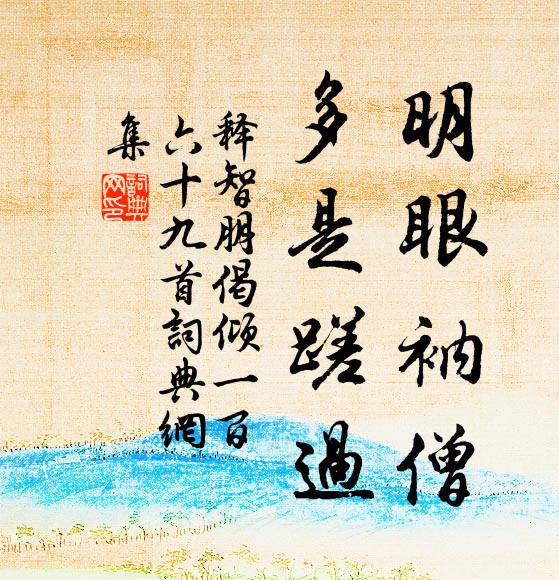 明眼衲僧
多是蹉過
释智朋偈倾一百
六十九首詞典網
集
詞典
网印